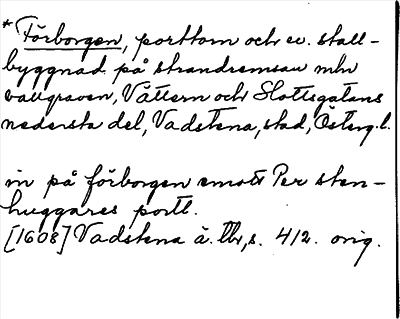 * Förborgen, porttorn och ev. stall-
byggnad på strandremsan mln
vallgraven, Vättern och Slottsgatans
nedersta del, Vadstena, stad, Österg.l.
in på förborgen emott Per sten-
huggares portt.
[1608] Vadstena ä. tb, s. 412. orig.